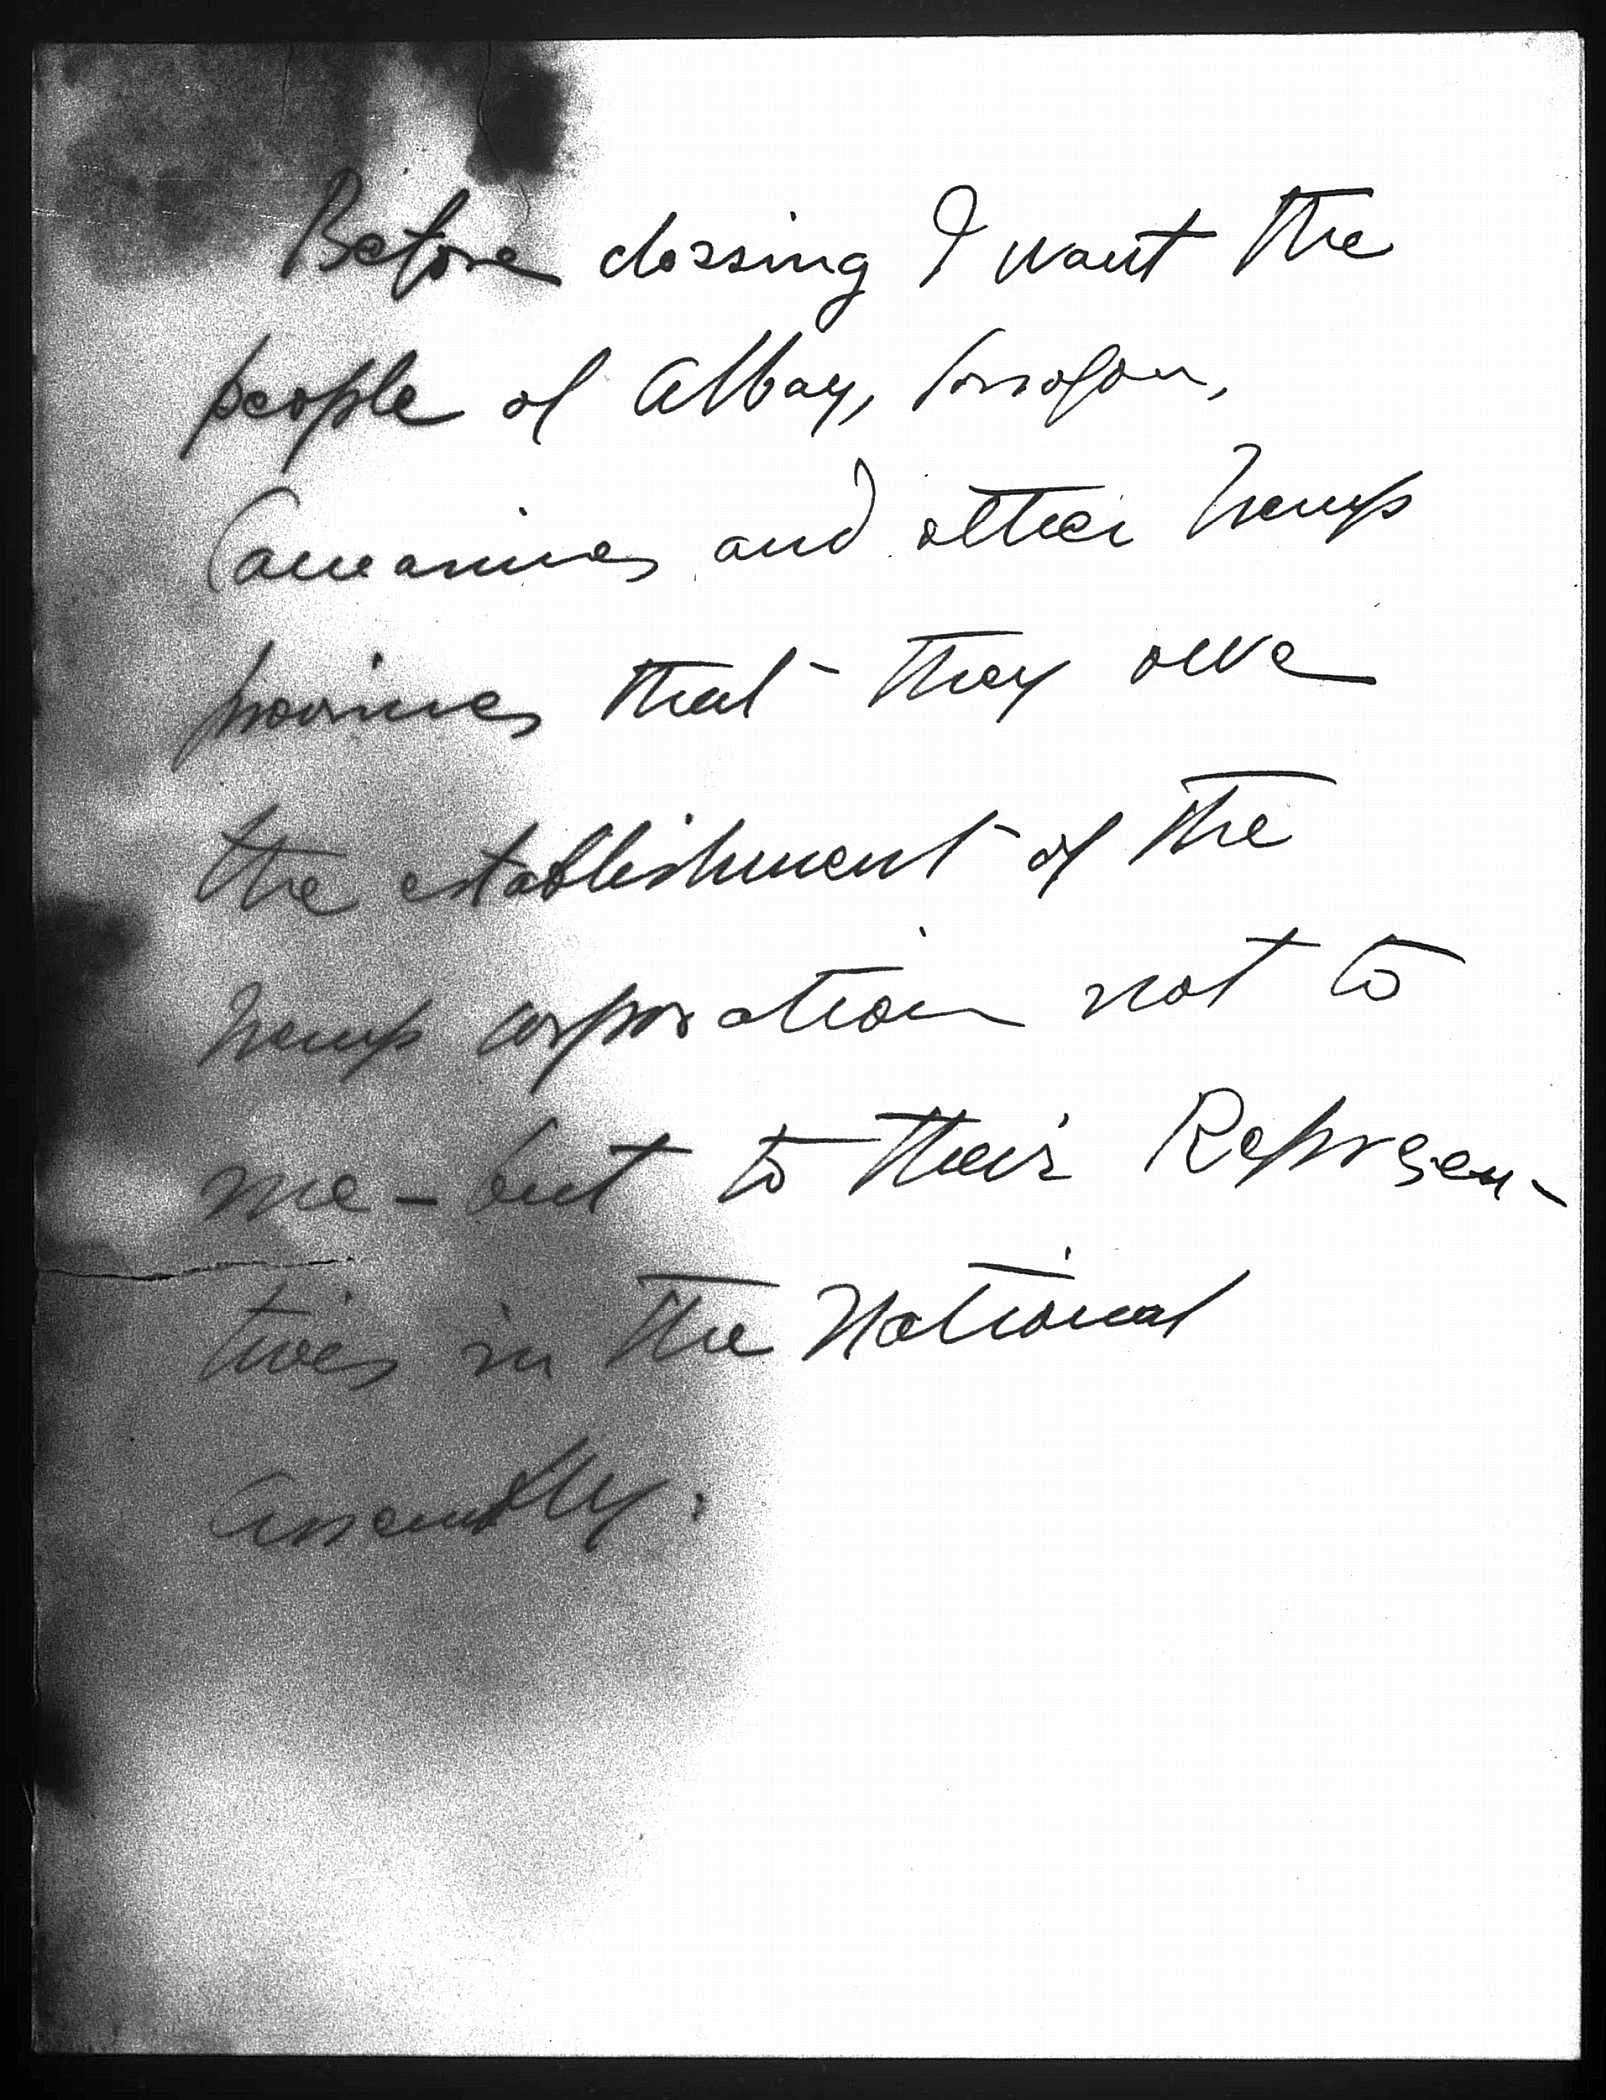 Before clossing I want the
people of Albay, Sorsogon,
Camarines and other hemp
provinces that they owe
the establishment of the
hemp corporation not to
me - but to their Represen-
tives in the National
Assembly.